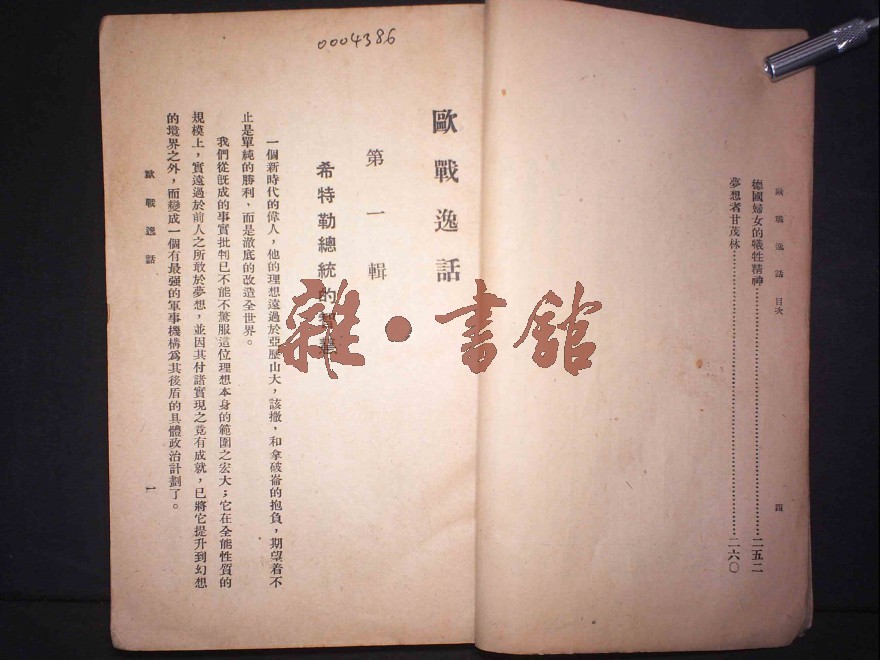 歐戰逸話 目次
德國婦女的犧牲精神……二五二
夢想者甘茂林……二六〇
四
0004386
歐戰逸話
第一輯
希特勒總統的智慧
一個新時代的偉人，他的理想遠過於亞歷山大，該撒，和拿破崙的抱負，期望着不
止是單純的勝利，而是澈底的改造全世界。
我們從旣成的事實批判已不能不驚服這位理想本身的範圍之宏大；它在全能性質的
規模上，實遠過於前人之所敢於夢想，並因其付諸實現之竟有成就，已將它提升到幻想
的境界之外，而變成一個有最强的軍事機構爲其後盾的具體政治計劃了。
歐戰逸話
一
雜·書館